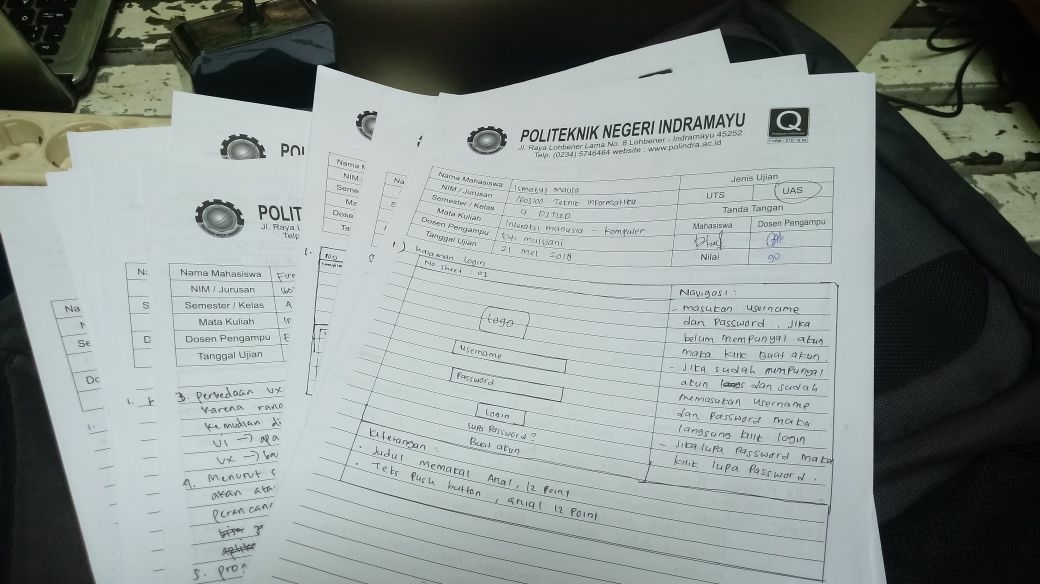 POLITEKNIK NEGERI INDRAMAYU
Jl. Raya Lohbener Lama No. 8 Lohbener - Indramayu 45252
Telp. (0234) 5746464 website : www.polindra.ac.id
Q
Nama Mahasiswa Ismatul Maula
NIM / Jurusan Teknik Informatika
Semester / Kelas 4
Mata Kuliah Interaksi manusia - Komputer
Dosen Pengampu
Tanggal Ujian 21 Mei 2018
Jenis Ujian
UTS UAS
Tanda Tangan
Mahasiswa Dosen Pengampu
Nilai 90
1.) halaman login
No. sheet : 01
Logo
Username
Password
Login
lupa Password ?
Buat akun
Navigasi :
- masukan username
dan Password . Jika
belum mempunyai akun
maka klik Buat akun.
- Jika sudah mempunyai
akun dan sudah
memasukan username
dan Password maka
langsung klik login
- Jika lupa Password maka
klik lupa Password .
Keterangan :
· Judul memakai Arial, 12 Point
· Teks Push button , arial 12 Point
POLIT
Jl. Raya L
Telp
Nama Mahasiswa Fir
NIM / Jurusan
Semester / Kelas A
Mata Kuliah
Dosen Pengampu E
Tanggal Ujian
3. Perbedaan UX
Karena ranc
Kemudian di
UI → apa
UX → ba
4. Menurut s
akan ata
Perancang
5. Prog
POL
Nama M
NIM
Seme
Ma
Dose
Ta
1. No
Na
Na
Se
Do
1.